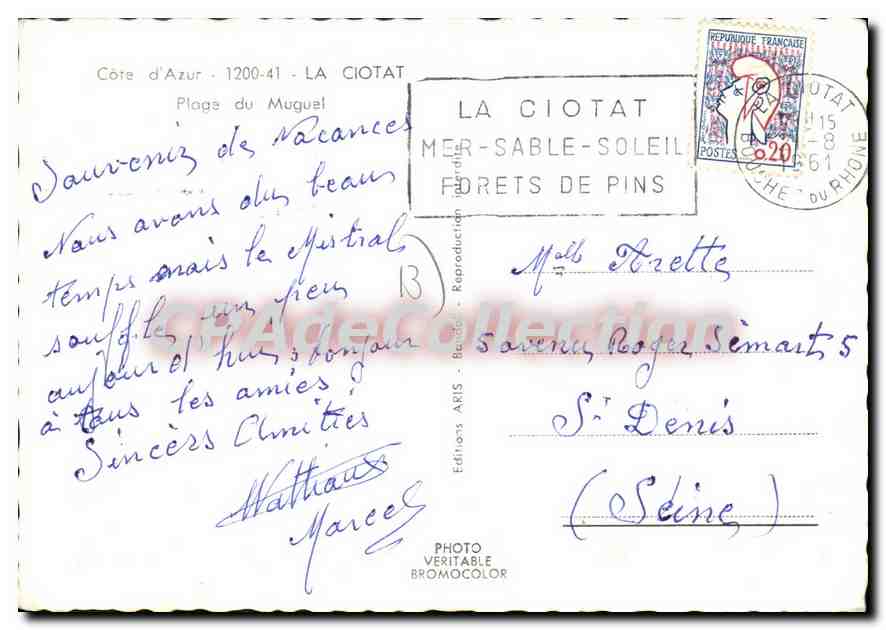 Côte d'Azur - 1200-41 - LA CIOTAT
Plage du Muguel
Souvenir de Vacances
Nous avons du beau
temps mais le Mistral
souffle un peu
aujourd'hui, bonjour
à tous les amies !
Sincèrs Amitiés
Marcel
B
LA CIOTAT
MER-SABLE-SOLEIL
FORETS DE PINS
REPUBLIQUE FRANÇAISE
POSTES 0,20
LA CIOTAT
15
-8
1961
BOUCHES DU RHONE
Melle Arette
5 avenu Roger Sèmart 5
St Denis
(Seine)
Editions ARIS - Bandol - Reproduction interdite
PHOTO
VERITABLE
BROMOCOLOR
CPAdeCollection